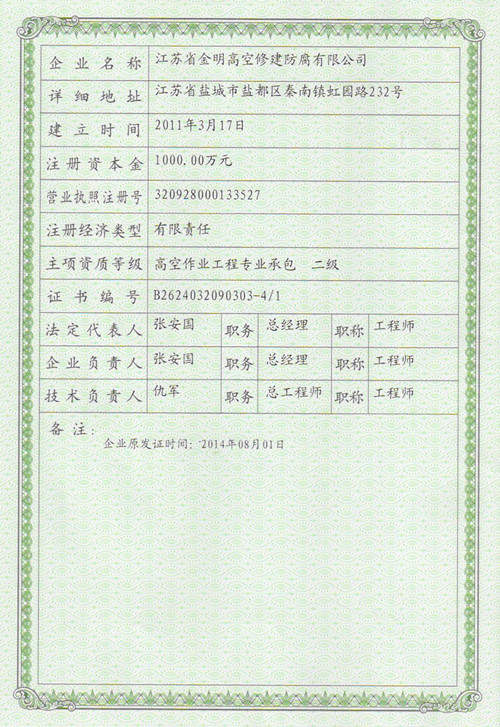 企业名称 江苏省金明高空修建防腐有限公司
详细地址 江苏省盐城市盐都区秦南镇虹园路232号
建立时间 2011年3月17日
注册资本金 1000.00万元
营业执照注册号 320928000133527
注册经济类型 有限责任
主项资质等级 高空作业工程专业承包 二级
证书编号 B2624032090303-4/1
法定代表人 张安国 职务 总经理 职称 工程师
企业负责人 张安国 职务 总经理 职称 工程师
技术负责人 仇军 职务 总工程师 职称 工程师
备注：
企业原发证时间：2014年08月01日